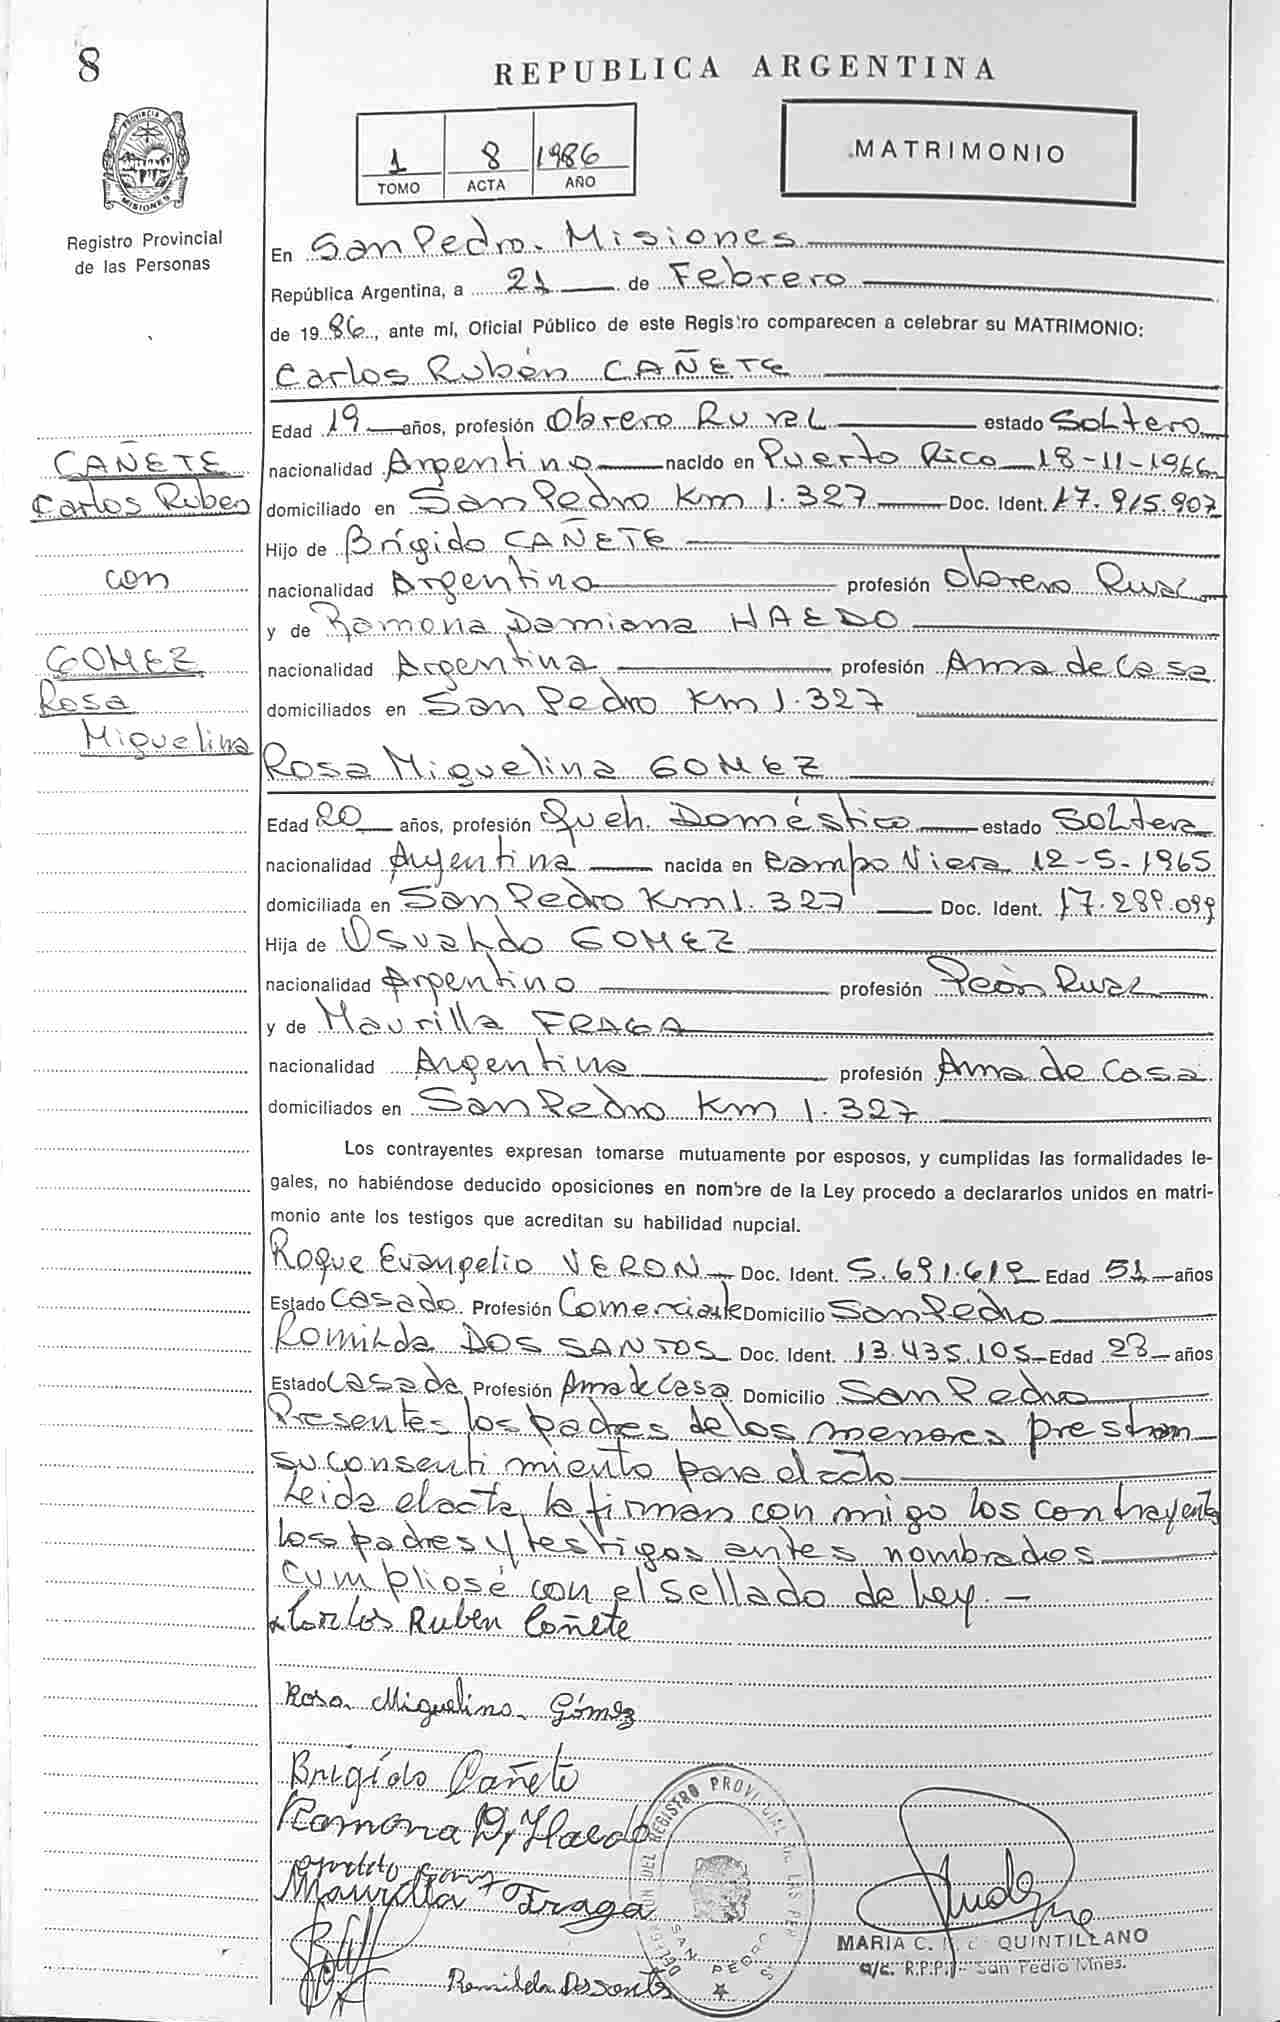 8
REPUBLICA ARGENTINA
PROVINCIA DE MISIONES
1 8 1986
TOMO ACTA AÑO
MATRIMONIO
Registro Provincial
de las Personas
En San Pedro. Misiones
República Argentina, a 21 de Febrero
de 1986, ante mí, Oficial Público de este Registro comparecen a celebrar su MATRIMONIO:
Carlos Rubén CAÑETE
Edad 19 años, profesión Obrero Rural estado Soltero
CAÑETE
nacionalidad Argentino nacido en Puerto Rico 18-11-1966
Carlos Ruben
domiciliado en San Pedro Km 1.327 Doc. Ident. 17.915.907
Hijo de Brígido CAÑETE
con
nacionalidad Argentino profesión Obrero Rural
y de Ramona Damiana HAEDO
GOMEZ
nacionalidad Argentina profesión Ama de Casa
Rosa
domiciliados en San Pedro Km 1.327
Miguelina
Rosa Miguelina GOMEZ
Edad 20 años, profesión Queh. Doméstico estado Soltera
nacionalidad Argentina nacida en Campo Viera 12-5-1965
domiciliada en San Pedro Km 1.327 Doc. Ident. 17.289.099
Hija de Osvaldo GOMEZ
nacionalidad Argentino profesión Peón Rural
y de Maurilla FRAGA
nacionalidad Argentina profesión Ama de Casa
domiciliados en San Pedro Km 1.327
Los contrayentes expresan tomarse mutuamente por esposos, y cumplidas las formalidades le-
gales, no habiéndose deducido oposiciones en nombre de la Ley procedo a declararlos unidos en matri-
monio ante los testigos que acreditan su habilidad nupcial.
Roque Evangelio VERON Doc. Ident. 5.691.619 Edad 51 años
Estado Casado Profesión Comerciante Domicilio San Pedro
Romilda DOS SANTOS Doc. Ident. 13.435.105 Edad 28 años
Estado Casada Profesión Ama de Casa Domicilio San Pedro
Presentes los padres de los menores prestan
su consentimiento para el acto
Leida el acta, la firman con migo los contrayentes
los padres y testigos antes nombrados
Cumpliosé con el sellado de Ley. -
Carlos Ruben Cañete
Rosa Miguelina Gómez
Brigído Cañete
Ramona D, Haedo
Maurilla Fraga
Romilda Dos Santos
DEL REGISTRO PROVINCIAL DE LAS PER
SAN PEDRO
MARIA C. QUINTILLANO
a/c. R.P.P. - San Pedro Mnes.